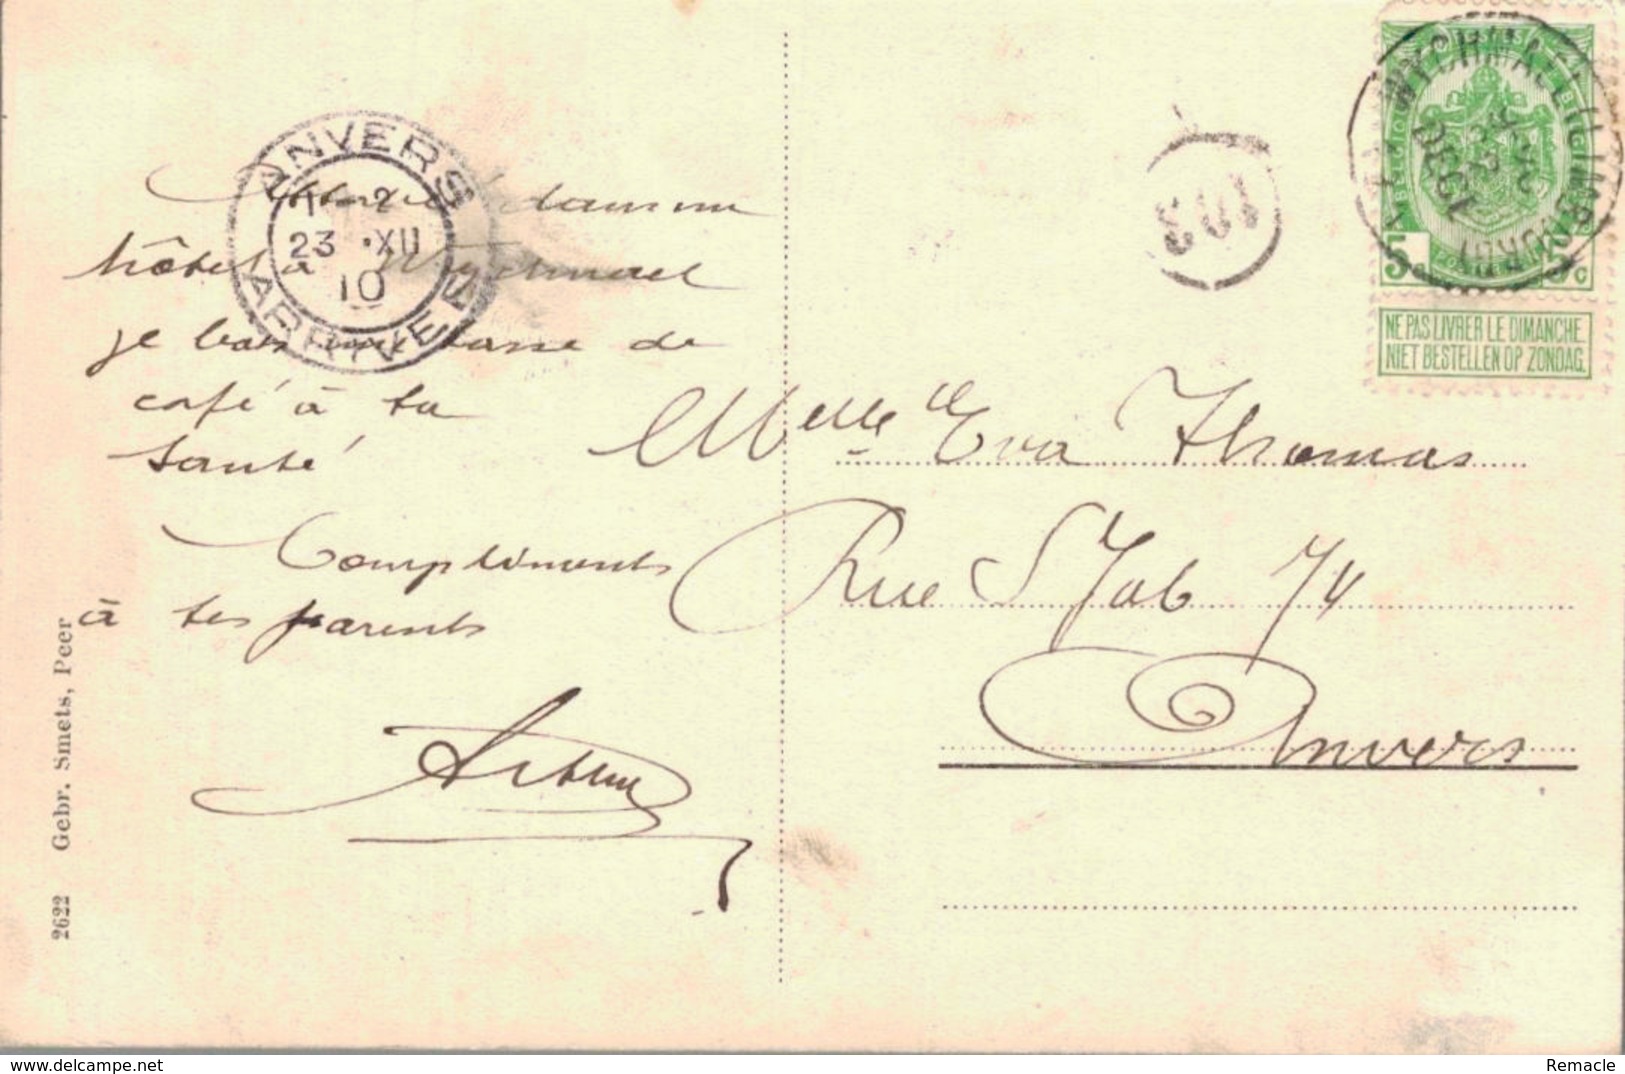 ANVERS
1 2
23 .XII
10
ARRIVEE
dans un
hôtel à Wychmael
je bois une tasse de
café à ta
santé
Compliments
à tes parents
Arthur
Melle Eva Thomas
Rue S Jab 74
Anvers
103
WYCHMAEL
22
DEC
1910
5c 5c
NE PAS LIVRER LE DIMANCHE.
NIET BESTELLEN OP ZONDAG.
2622 Gebr. Smets, Peer
delcampe.net
Remacle